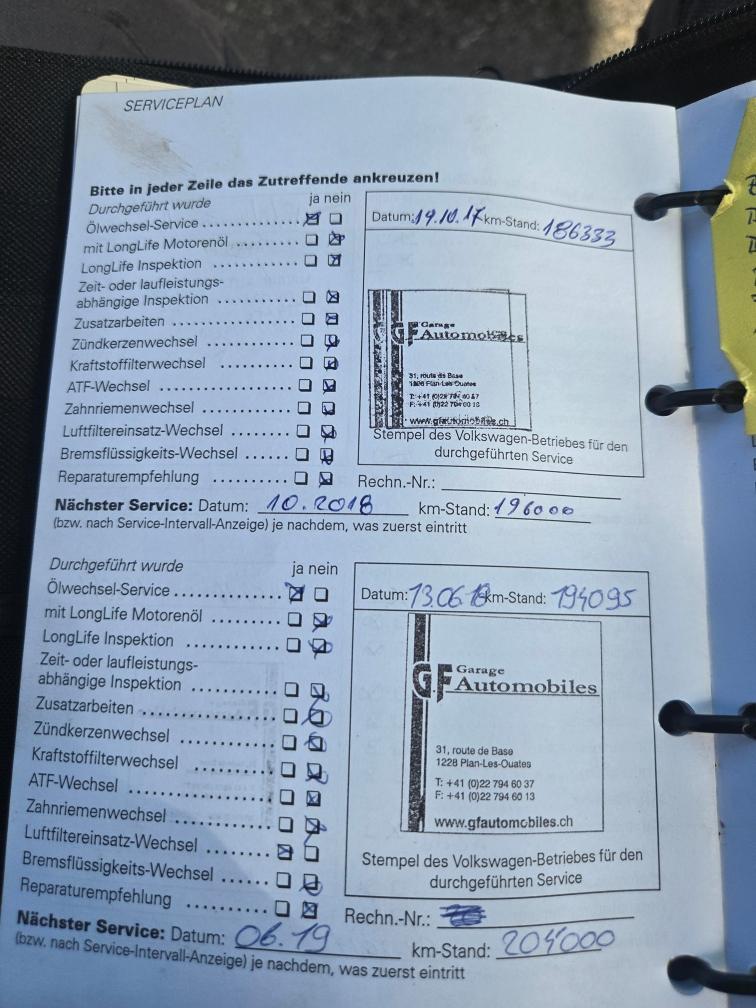 SERVICEPLAN
Bitte in jeder Zeile das Zutreffende ankreuzen!
Durchgeführt wurde ja nein
Ölwechsel-Service
mit LongLife Motorenöl
LongLife Inspektion
Zeit- oder laufleistungs-
abhängige Inspektion
Zusatzarbeiten
Zündkerzenwechsel
Kraftstoffilterwechsel
ATF-Wechsel
Zahnriemenwechsel
Luftfiltereinsatz-Wechsel
Bremsflüssigkeits-Wechsel
Reparaturempfehlung
Datum: 19.10.17 km-Stand: 186333
GF Garage
Automobiles
31, route de Base
1228 Plan-Les-Ouates
www.gfautomobiles.ch
Stempel des Volkswagen-Betriebes für den
durchgeführten Service
Rechn.-Nr.:
Nächster Service: Datum: 10.2018 km-Stand: 196000
(bzw. nach Service-Intervall-Anzeige) je nachdem, was zuerst eintritt
Durchgeführt wurde ja nein
Ölwechsel-Service
mit LongLife Motorenöl
LongLife Inspektion
Zeit- oder laufleistungs-
abhängige Inspektion
Zusatzarbeiten
Zündkerzenwechsel
Kraftstoffilterwechsel
ATF-Wechsel
Zahnriemenwechsel
Luftfiltereinsatz-Wechsel
Bremsflüssigkeits-Wechsel
Reparaturempfehlung
Datum: 13.06.18 km-Stand: 194095
GF Garage
Automobiles
31, route de Base
1228 Plan-Les-Ouates
T: +41 (0)22 794 60 37
F: +41 (0)22 794 60 13
www.gfautomobiles.ch
Stempel des Volkswagen-Betriebes für den
durchgeführten Service
Rechn.-Nr.:
Nächster Service: Datum: 06.19 km-Stand: 204000
(bzw. nach Service-Intervall-Anzeige) je nachdem, was zuerst eintritt